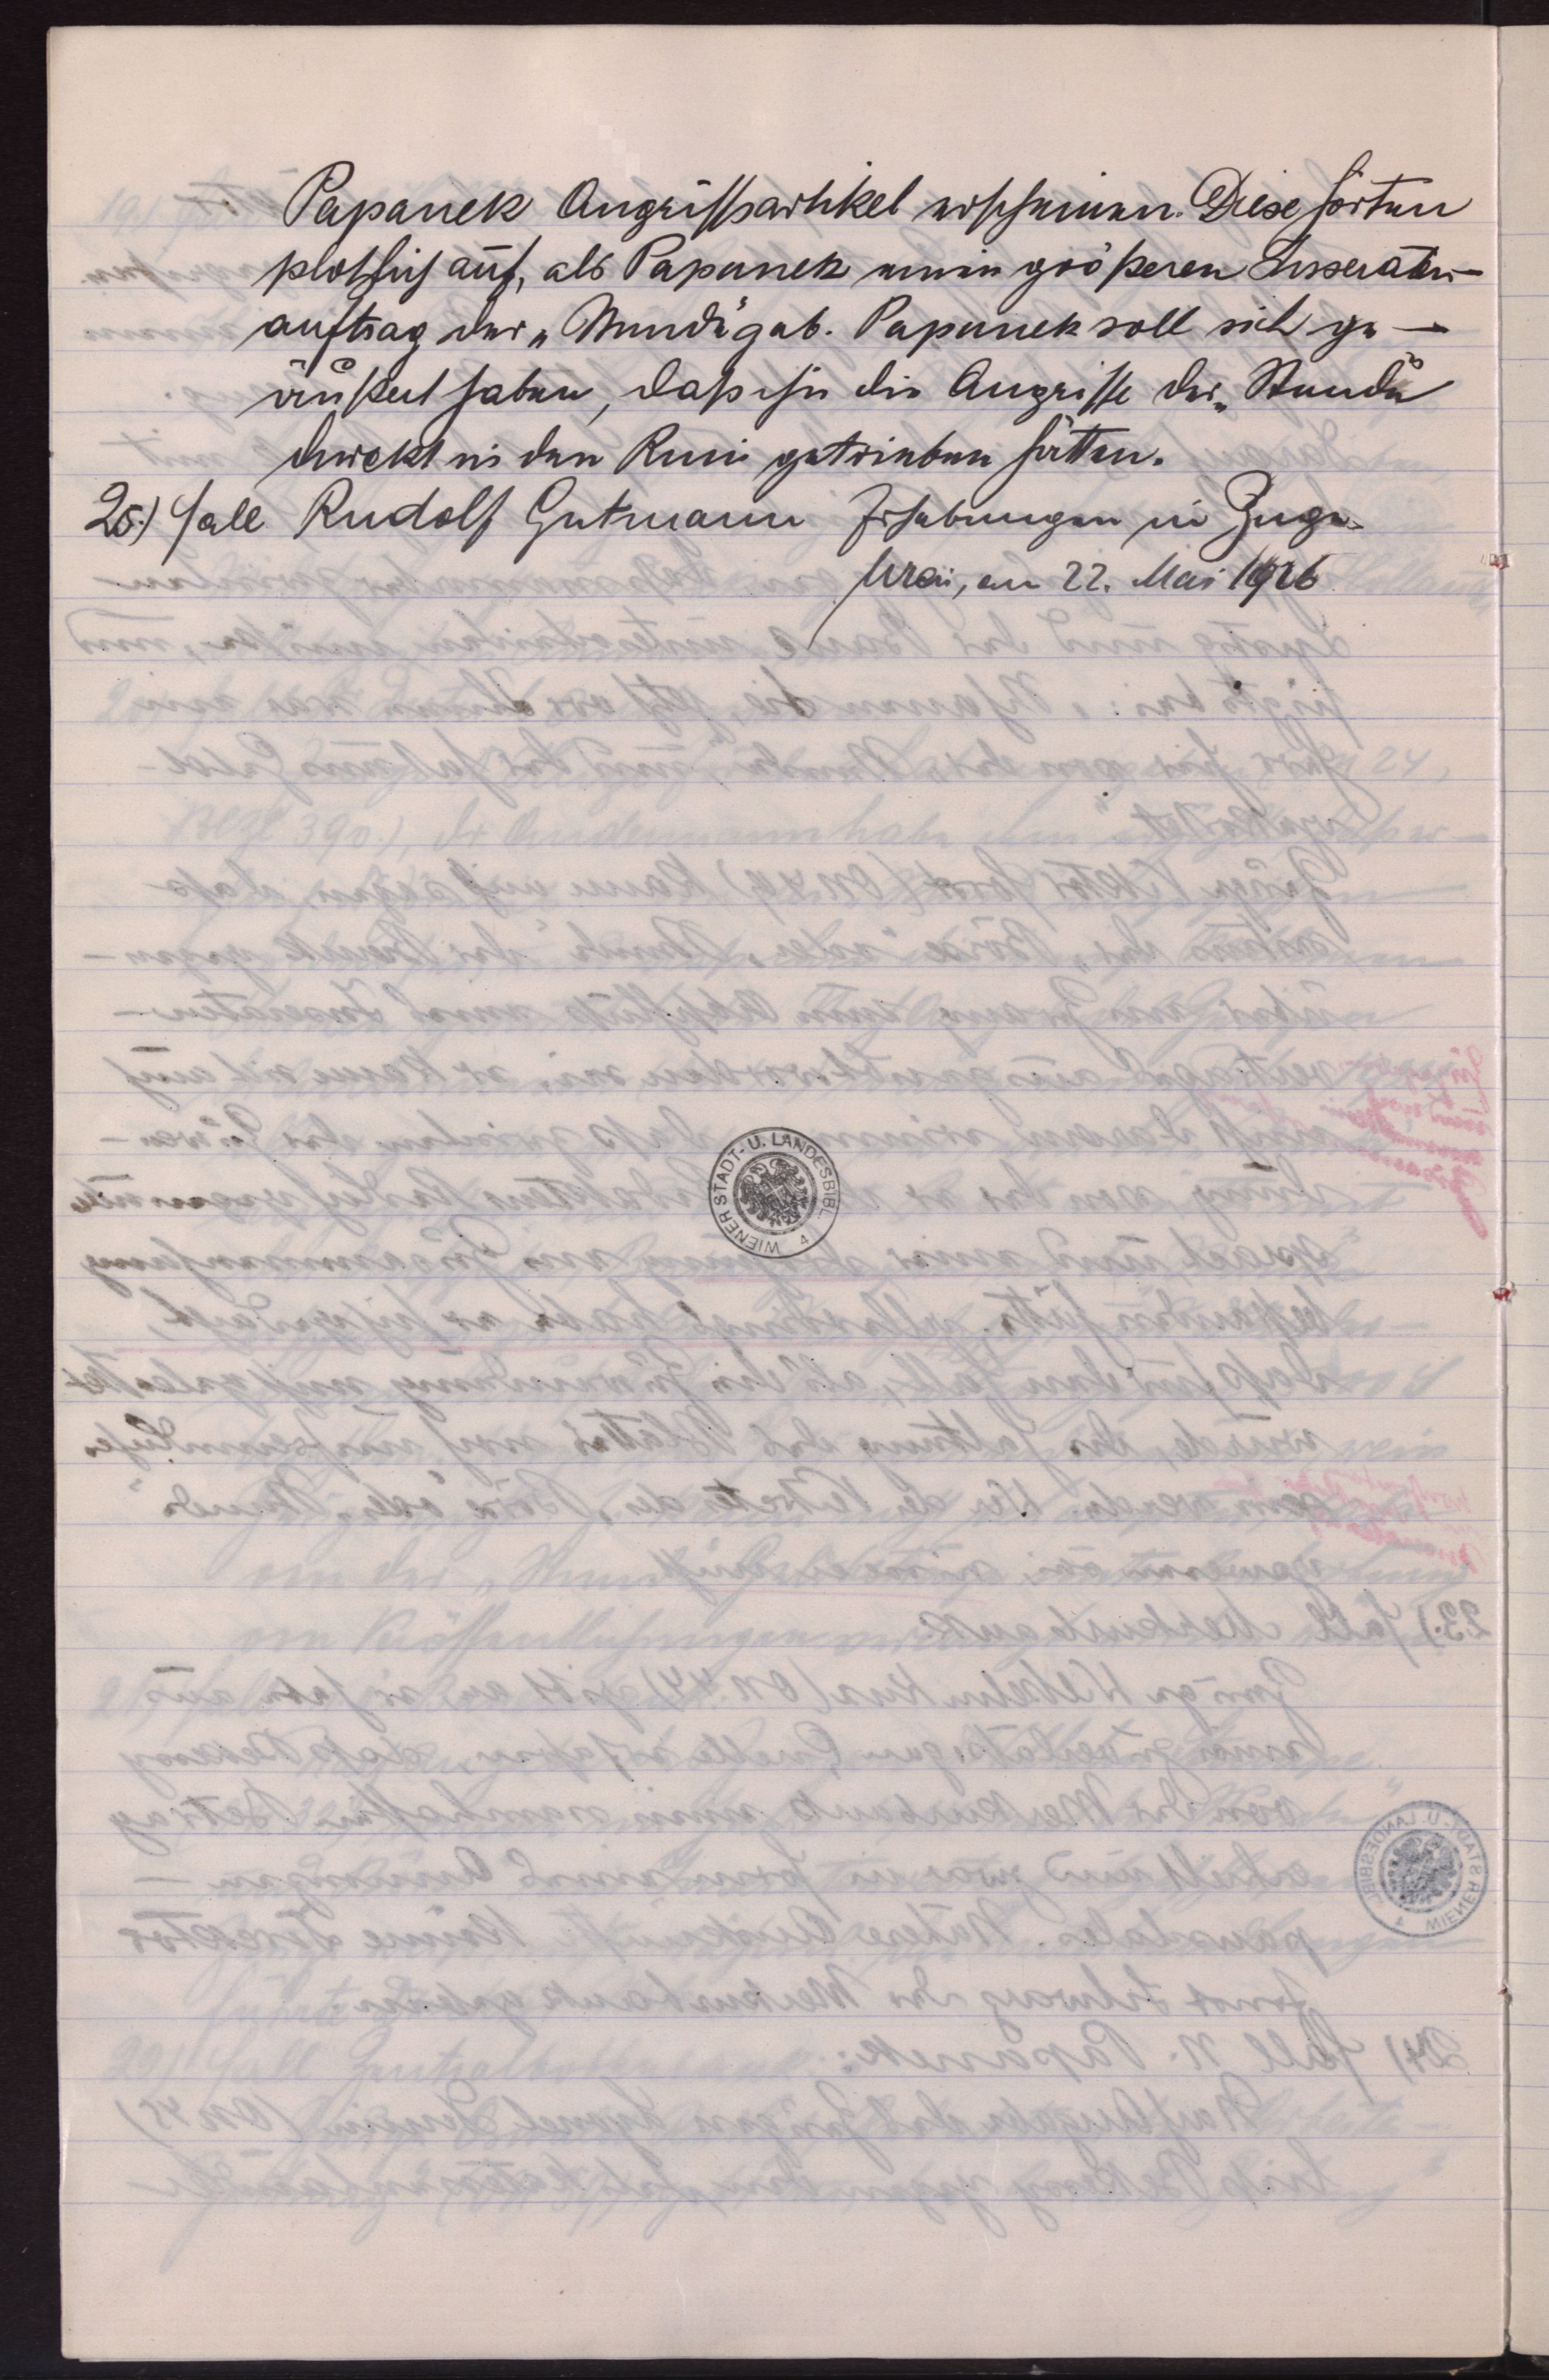 Papanek Angriffsartikel erscheinen. Diese hörten
plötzlich auf, als Papanek einen größeren Inseraten-
auftrag der „Stunde" gab. Papanek soll sich ge-
äußert haben, daß ihn die Angriffe der „Stunde"
direkt in den Ruin getrieben hätten.
25.) Fall Rudolf Gutmann Erhebungen im Zuge.
Wien, am 22. Mai 1926
WIENER STADT- U. LANDESBIBL. 4